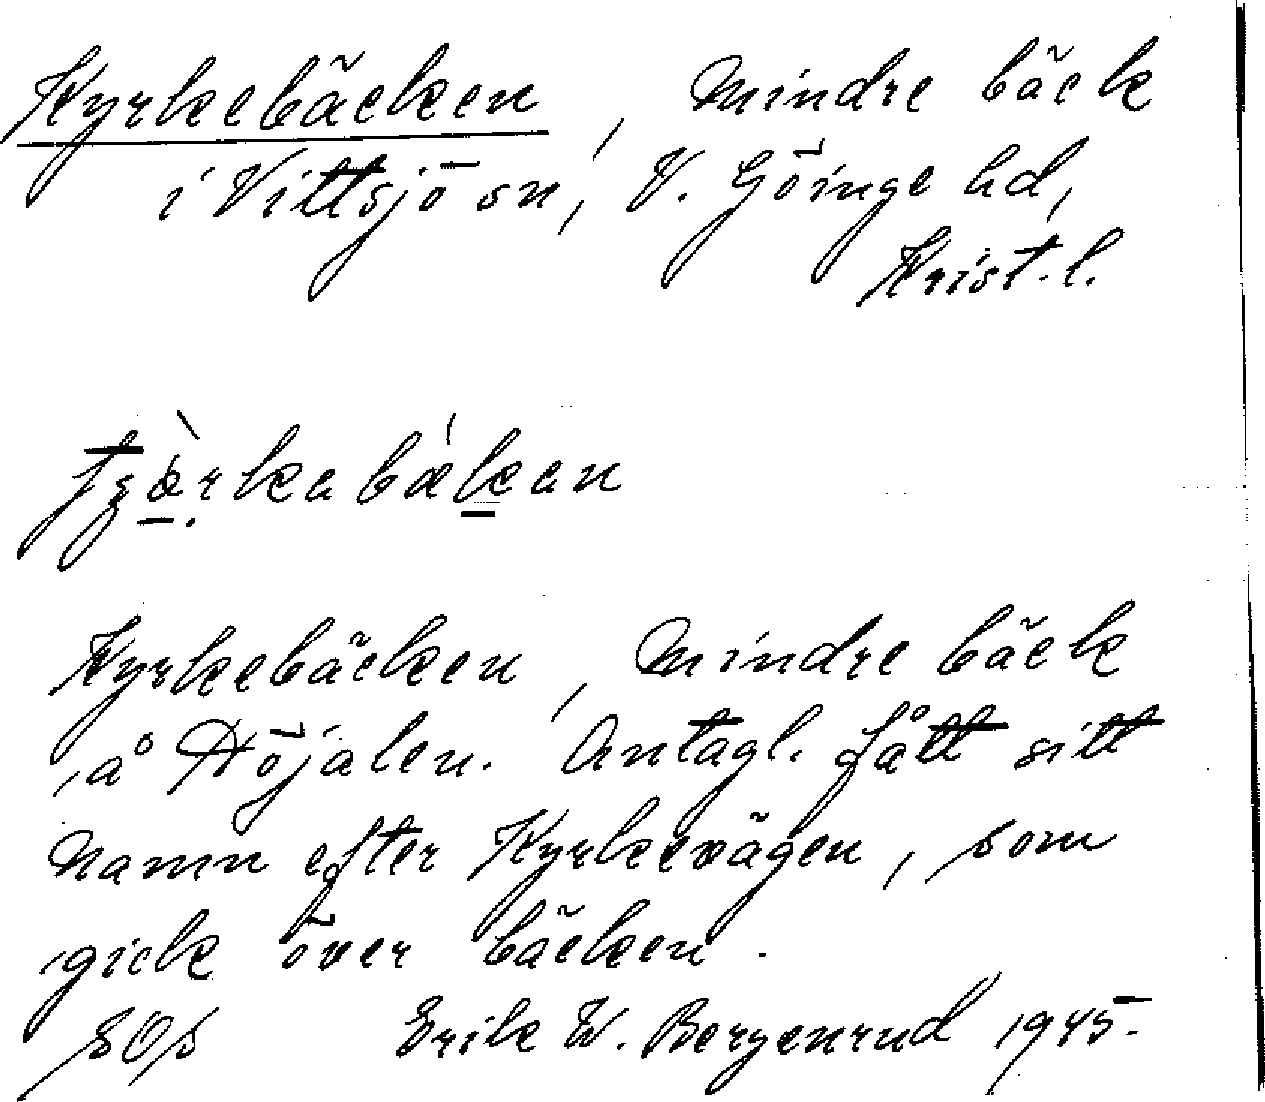 Kyrkebäcken, Mindre bäck
i Vittsjö sn, V. Göinge hd,
Krist. l.
Kyrkebäcken, Mindre bäck
å Döjalen. Antagl. fått sitt
Namn efter Kyrkevägen, som
gick över bäcken.
Erik W. Bergenrud 1945.